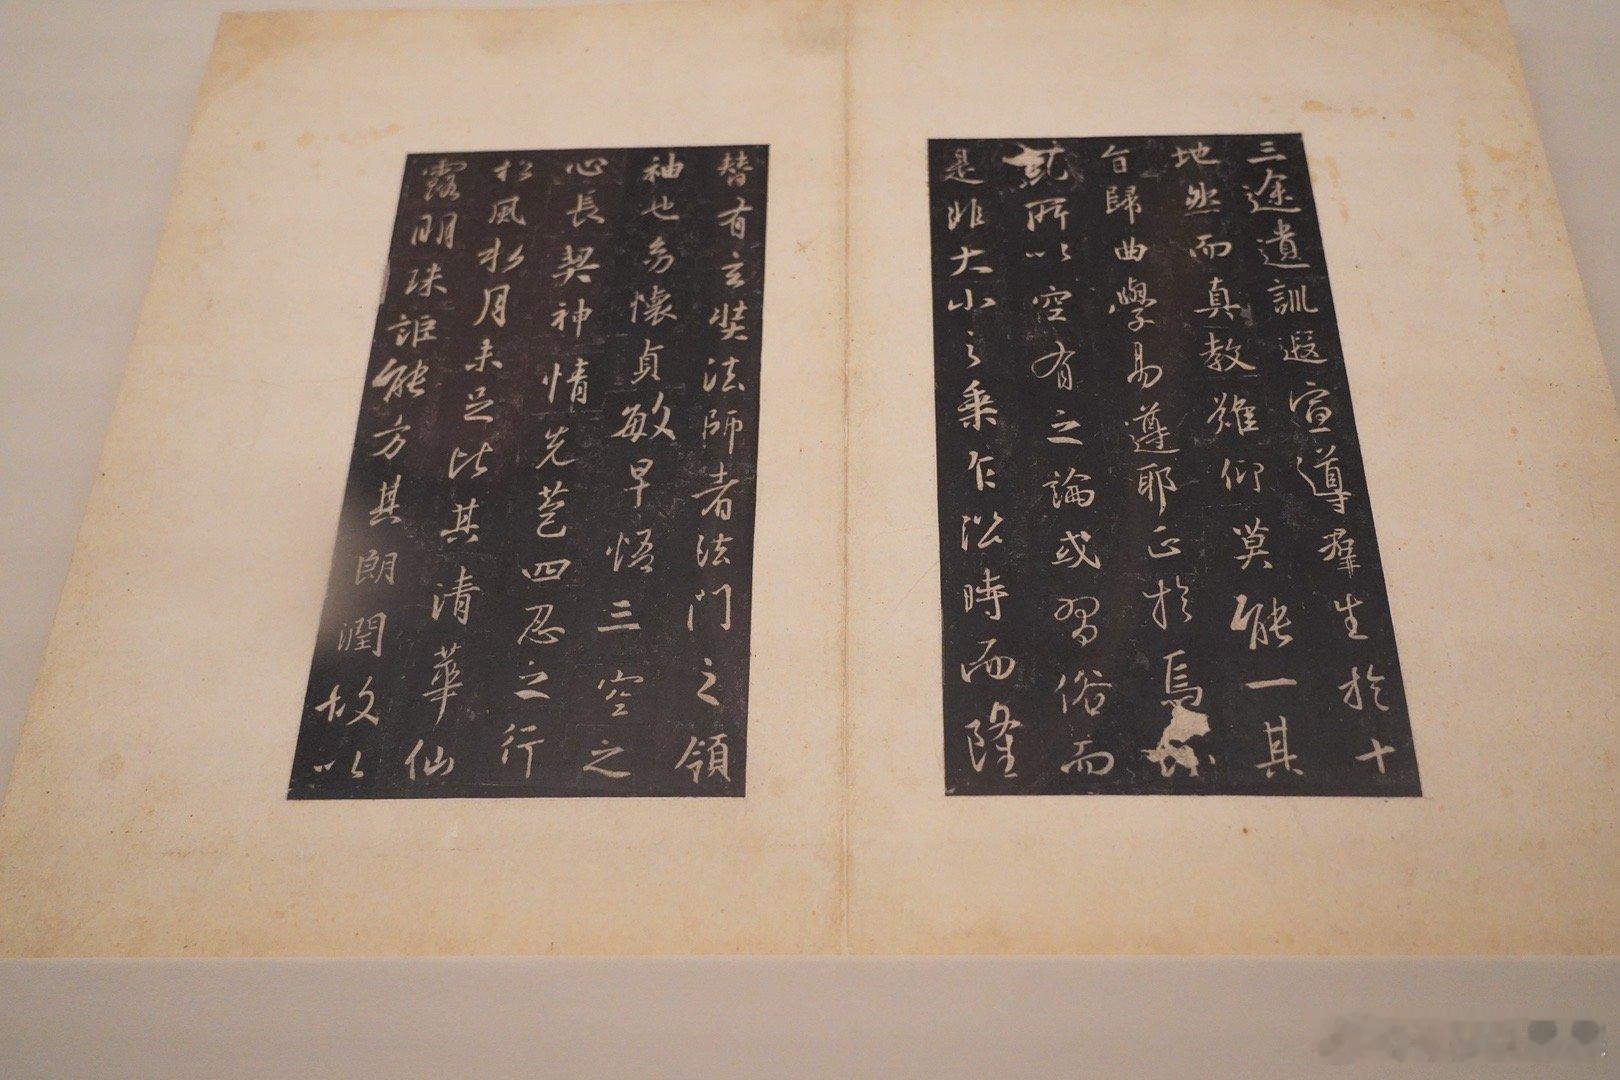 三途遺訓遐宣導羣生於十
地然而真教難仰莫能一其
旨歸曲學易遵耶正於焉
所以空有之論或習俗而
是非大小之乘乍沿時而隆
替有玄奘法師者法門之領
袖也幼懷貞敏早悟三空之
心長契神情先苞四忍之行
松風水月未足比其清華仙
露明珠詎能方其朗潤故以